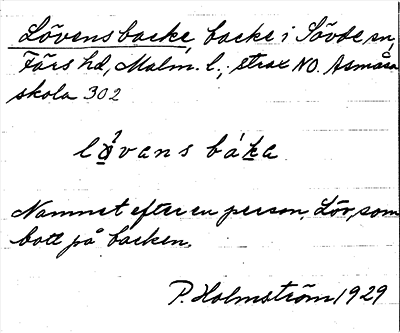 Lövens backe, backe i Sövde sn,
Färs hd, Malm. l., strax NO. Asmåsa
skola 302
lǫ́vans báka
Namnet efter en person, Löv, som
bott på backen.
P. Holmström 1929